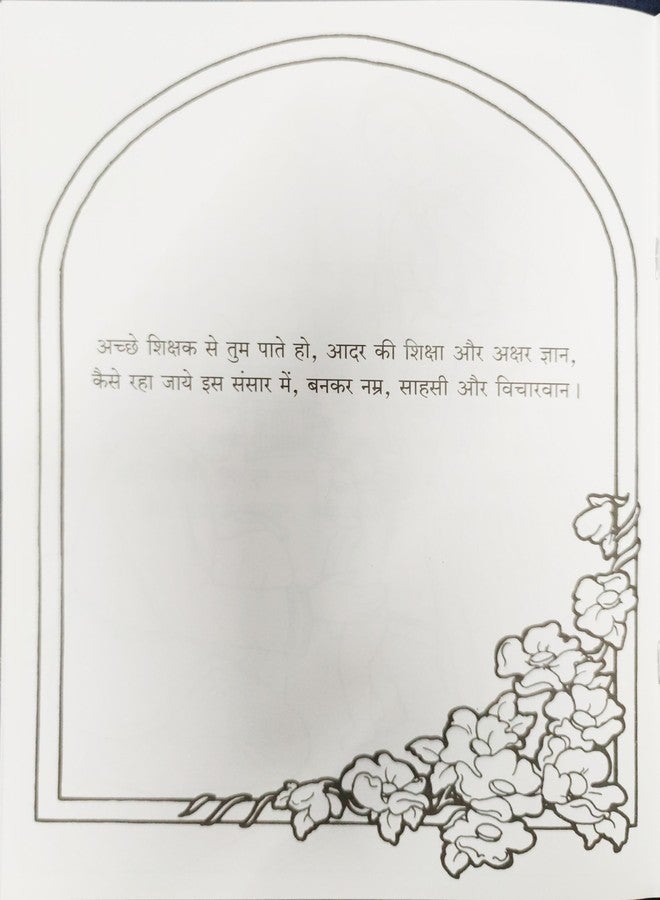 अच्छे शिक्षक से तुम पाते हो, आदर की शिक्षा और अक्षर ज्ञान,
कैसे रहा जाये इस संसार में, बनकर नम्र, साहसी और विचारवान।